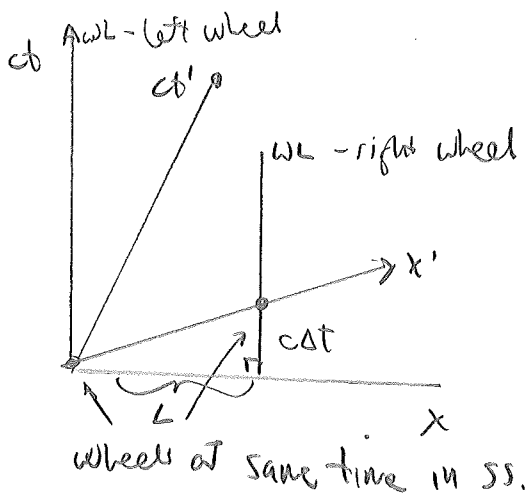 ct
WL - left wheel
ct'
WL - right wheel
x'
cΔt
L
x
wheels at same time in SS.